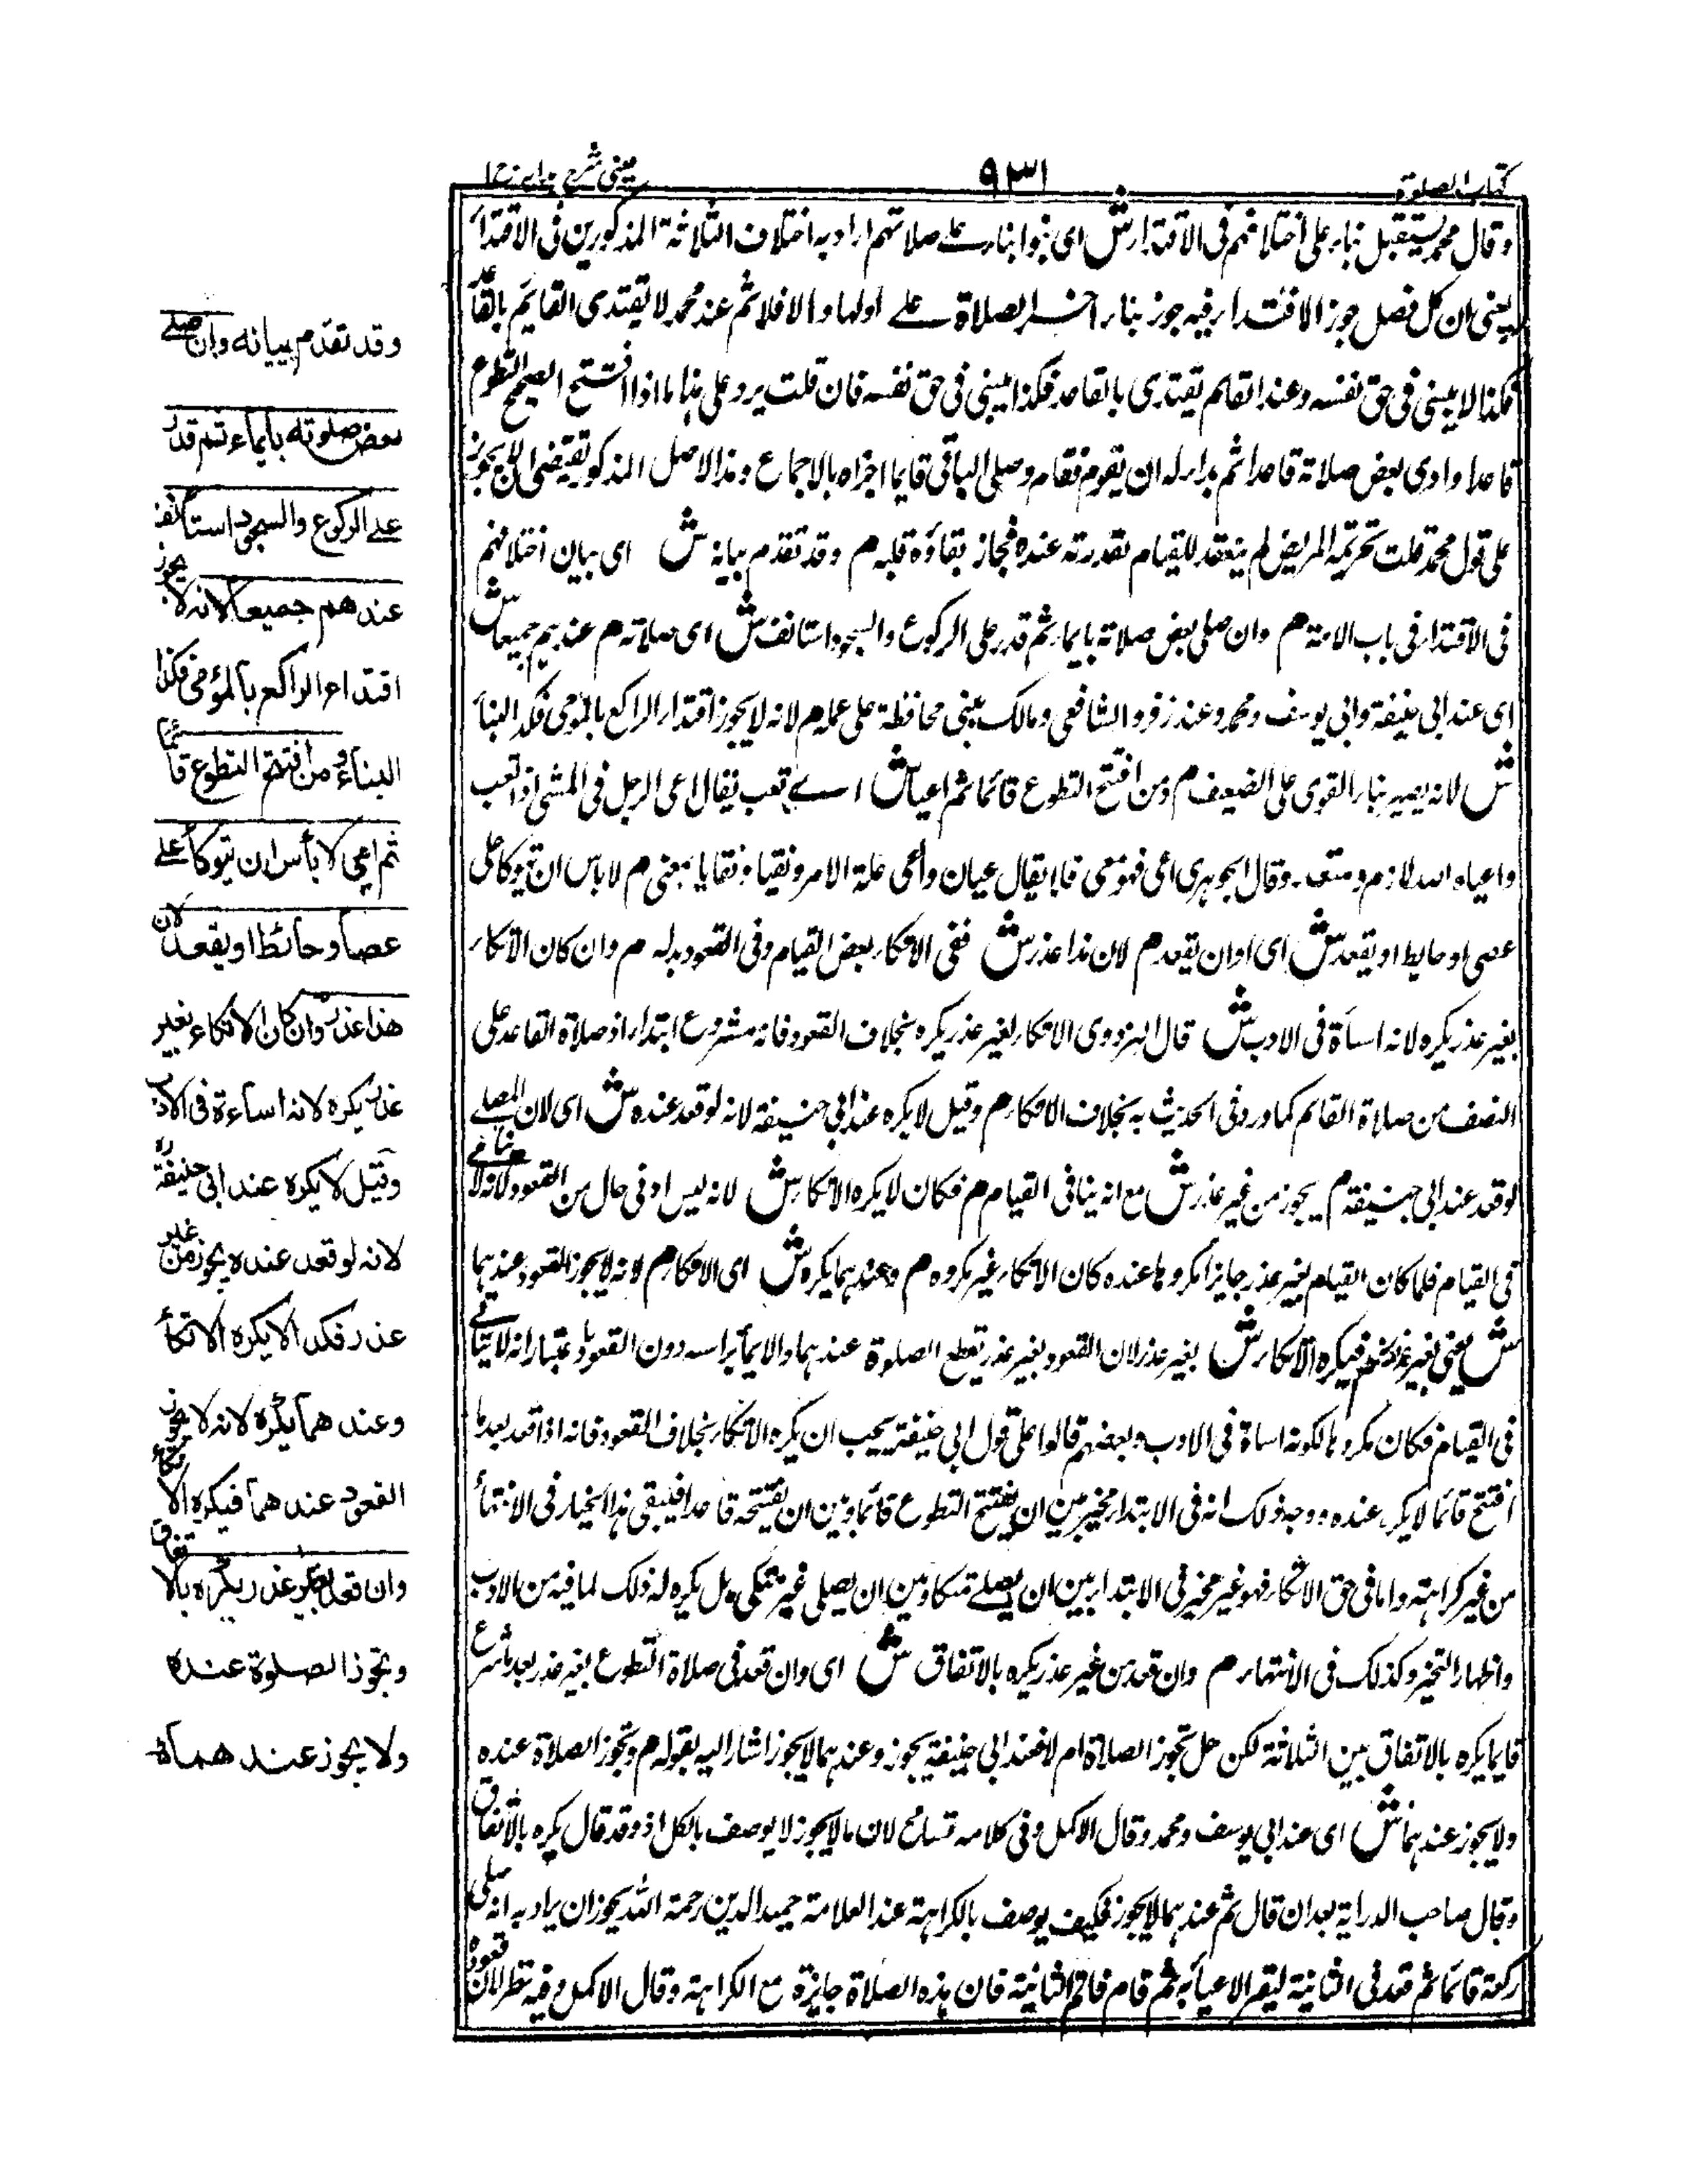 كتاب الصلوة
٩٣١
عينى شرح هدايه ج ١
وقال محمد يستقبل بناء على اختلافهم فى الاقتداء ش اى بنوا بناء على صلاتهم اراد به اختلاف الثلاثة المذكورين فى الاقتداء
يعنى ان كل فصل جوز الاقتداء فيه جوز بناء اخر الصلاة على اولها والا فلا ثم عند محمد لا يقتدى القايم بالقاعد
فكذا لا يبنى فى حق نفسه وعندا لقايم يقتدى بالقاعد فكذا يبنى فى حق نفسه فان قلت يرد على هذا ما اذا افتتح الصحيح التطوع
قاعدا وادى بعض صلاته قاعدا ثم بدا له ان يقوم فقام وصلى الباقى قايما اجزاه بالاجماع وهذا الاصل المذكور يقتضى ان لا يجوز
على قول محمد قلت تحريمة المريض لم ينعقد للقيام لقدرته عنده فجاز بقاؤه قلبه م وقد تقدم بيانه ش اى بيان اختلافهم
فى الاقتداء فى باب الامامة م وان صلى بعض صلاته بايماء ثم قدر على الركوع والسجود استانف ش اى صلاته م عندهم جميعا ش
اى عند ابى حنيفة وابى يوسف ومحمد وعند زفر والشافعى ومالك يبنى محافظة على عمله م لانه لا يجوز اقتداء الراكع بالمومى فكذا البناء
ش لانه يصير بناء القوى على الضعيف م ومن افتتح التطوع قائما ثم اعيا ش اى تعب يقال اعى الرجل فى المشى اذا تعب
واعياه الله لازم ومتعد وقال الجوهرى اعى فهو معى فلا يقال عيان واعى علة الامر وتعيا وتعايا بمعنى م لا باس ان يتوكا على
عصى او حايط او يقعد ش اى او ان يقعد م لان هذا عذر ش ففى الاتكاء بعض القيام وفى القعود بدله م وان كان الاتكاء
بغير عذر يكره لانه اساءة فى الادب ش قال البزدوى الاتكاء لغير عذر يكره بخلاف القعود فانه مشروع ابتداء اذ صلاة القاعد على
النصف من صلاة القائم كما ورد فى الحديث به بخلاف الاتكاء م وقيل لا يكره عند ابى حنيفة لانه لو قعد عنده ش اى لان المصلى
لو قعد عند ابى حنيفة م يجوز من غير عذر ش مع انه ينافى القيام م فكان لا يكره الاتكاء ش لانه ليس ادنى حال من القعود لانه لا ينافى
فى القيام فلما كان القيام بغير عذر جايزا مكروها عنده كان الاتكاء غير مكروه م وعندهما يكره ش اى الاتكاء م لانه لا يجوز القعود عندهما
ش يعنى بغير عذر م فيكره الاتكاء ش بغير عذر لان القعود بغير عذر يقطع الصلوة عندهما والايماء براسه دون القعود باعتبار انه لا يتاتى
فى القيام فكان مكروها لكونه اساة فى الادب وبعضهم قالوا على قول ابى حنيفة يجب ان يكره الاتكاء بخلاف القعود فانه اذا قعد بعد ما
افتتح قائما لا يكره عنده ووجه ذلك انه فى الابتداء مخير بين ان يفتتح التطوع قائما وبين ان يفتتحه قاعدا فيبقى هذا الخيار فى الانتهاء
من غير كراهته واما فى حق الاتكاء فهو غير مخير فى الابتداء بين ان يصلى متكاء وبين ان يصلى غير متكى بل يكره له ذلك لما فيه من الادب
واظهار التحيز وكذلك فى الانتهاء م وان قعد من غير عذر يكره بالاتفاق ش اى وان قعد فى صلاة التطوع بغير عذر بعد ما شرع
قايما يكره بالاتفاق بين الثلاثة لكن هل تجوز الصلاة ام لا فعند ابى حنيفة يجوز وعندهما لا يجوز اشار اليه بقوله م وتجوز الصلاة عنده
ولا يجوز عندهما ش اى عند ابى يوسف ومحمد وقال الاكمل وفى كلامه تسامح لان ما لا يجوز لا يوصف بالكل اذ وقد قال يكره بالاتفاق
وقال صاحب الدراية بعد ان قال ثم عندهما لا يجوز فكيف يوصف بالكراهة عند العلامة حميد الدين رحمة الله يجوز ان يراد به انه صلى
ركعة قائما ثم قعد فى الثانية ليقر الاعياء به ثم قام فاتم الثانية فان هذه الصلاة جايزة مع الكراهة وقال الاكمل وفيه نظر لان قعوده
وقد تقدم بيانه وان صلى
بعض صلوته بايماء ثم قدر
على الركوع والسجود استانف
عندهم جميعا لانه لا يجوز
اقتداء الراكع بالمؤمى فكذا
البناء ومن افتتح التطوع قائما
ثم اعيى لا بأس ان يتوكأ على
عصا او حائط او يقعد لان
هذا عذر وان كان الاتكاء بغير
عذر يكره لانه اساءة فى الادب
وقيل لا يكره عند ابى حنيفة ره
لانه لو قعد عنده يجوز من غير
عذر فكذا لا يكره الاتكأ
وعندهما يكره لانه لا يجوز
القعود عندهما فيكره الاتكاء
وان قعد بغير عذر يكره بالاتفاق
وتجوز الصلوة عنده
ولا يجوز عندهما